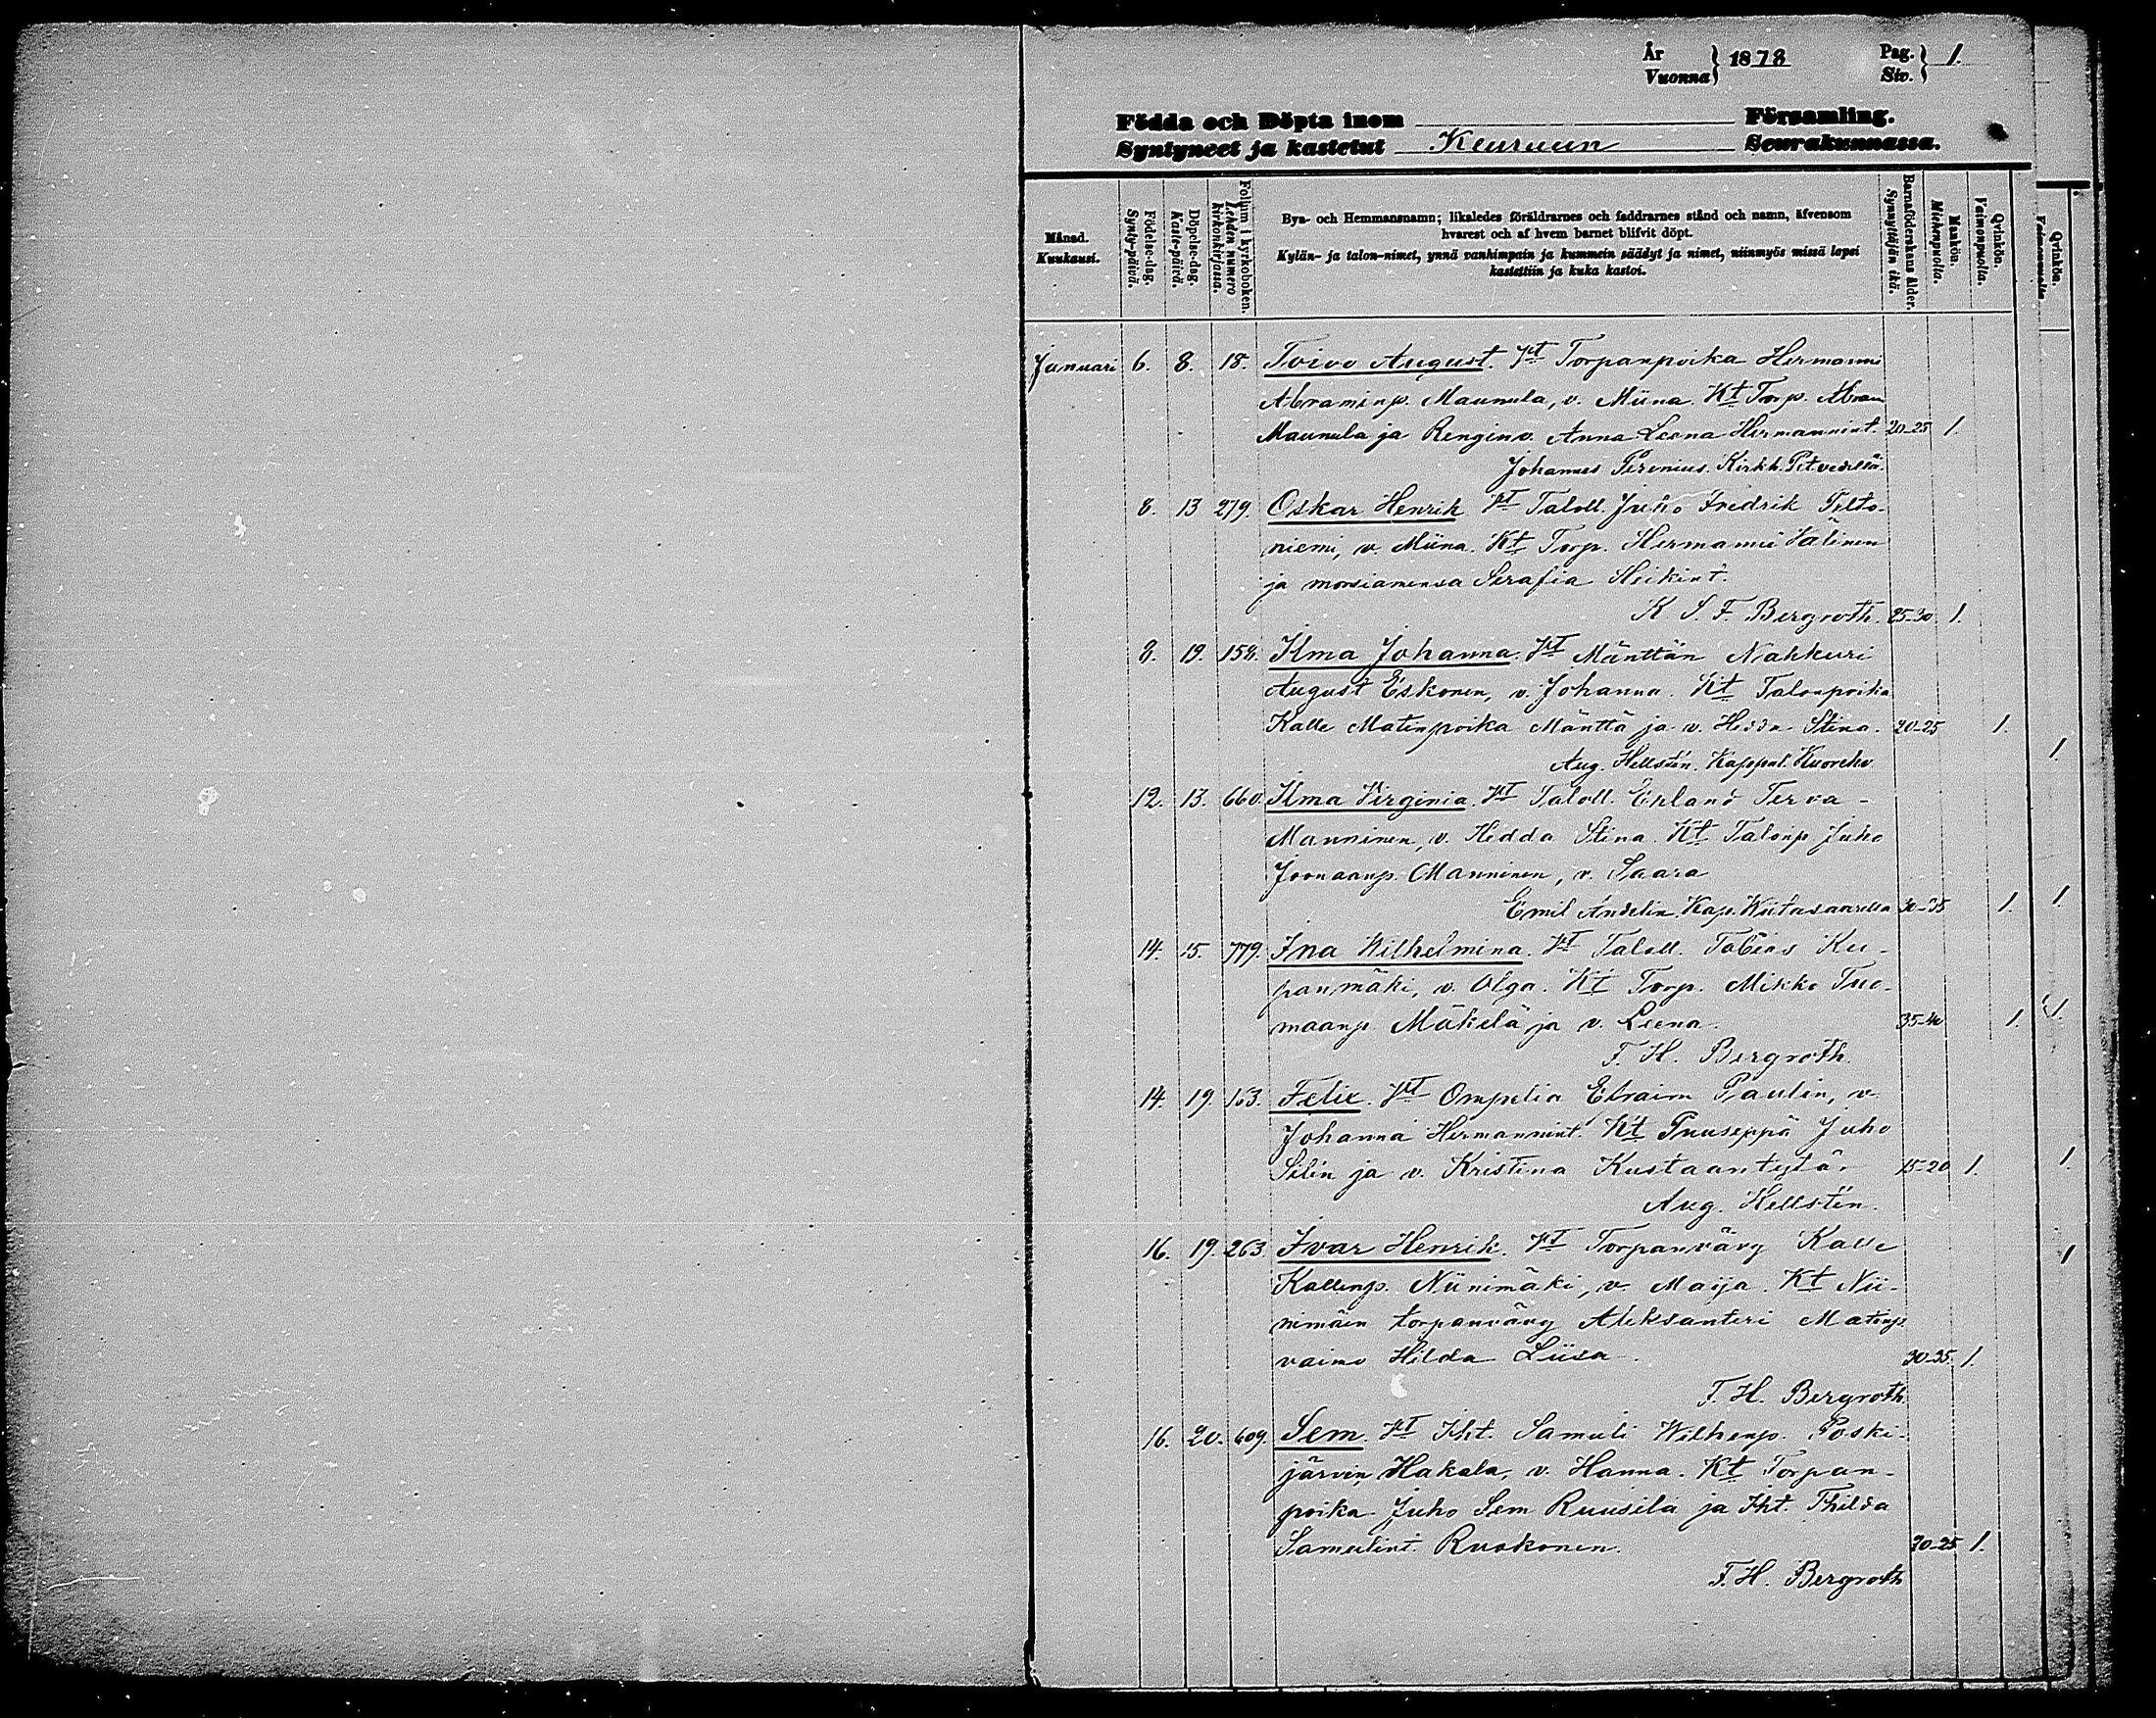 År Vuonna } 1878 Pag. Siv. } 1.
Födda och Döpta inom Församling.
Syntyneet ja kastetut Keuruun Seurakunnassa.
Månad. Kuukausi.
Födelse-dag. Synty-päivä.
Döpelse-dag. Kaste-päivä.
Folium i kyrkoboken. Lehden numero kirkonkirjassa.
Bya- och Hemmansnamn; likaledes föräldrarnes och faddrarnes stånd och namn, äfvensom
hvarest och af hvem barnet blifvit döpt.
Kylän- ja talon-nimet, ynnä vanhimpain ja kummein säädyt ja nimet, niinmyös missä lapsi
kastettiin ja kuka kastoi.
Barnaföderskans ålder. Synnyttäjän ikä.
Mankön. Miehenpuolta.
Qvinkön. Vaimonpuolta.
Qvinkön. Vaimonpuolta
Januari 6. 8. 18. Toivo August. Vt Torpanpoika Hermanni
Abraminp. Maunula, v. Miina. Kt Torp. Abram
Maunula ja Rengin v. Anna Leena Hermannint. 20-25 1.
Johannes Perenius. Kirkh. Petvedellä.
8. 13 279. Oskar Henrik Vt Taloll. Juho Fredrik Pelto-
niemi, v. Miina. Kt Torp. Hermanni Välinen
ja morsiamensa Serafia Heikint.
K. S. F. Bergroth. 25-30 1.
8. 19. 158. Ilma Johanna. Vt Mänttän Nahkuri
August Eskonen, v. Johanna. Kt Talonpoika
Kalle Matinpoika Mänttä ja v. Hedda Stina. 20-25 1.
Aug. Hellstén. Kappal. Kuoreho 1.
12. 13. 660. Ilma Virginia. Vt Taloll. Erland Terva-
Manninen, v. Hedda Stina. Kt Talonp. Juho
Joonaanp. Manninen, v. Saara
Emil Andelin. Kap. Wiitasaarella 30-35 1. 1.
14. 15. 779. Ina Wilhelmina. Vt Taloll. Tobias Ku-
panmäki, v. Olga. Kt Torp. Mikko Tuo-
maanp. Mäkelä ja v. Leena. 35-40 1. 1.
F. H. Bergroth.
14. 19. 163. Felix. Vt Ompelia Efraim Paulin, v.
Johanna Hermannint. Kt Puuseppä Juho
Silin ja v. Kristina Kustaantytär 15-20 1. 1.
Aug. Hellstén.
16. 19. 263. Ivar Henrik. Vt Torpanvävy Kalle 1
Kallenp. Niinimäki, v. Maija. Kt Nii-
nimäen torpanvävy Aleksanteri Matinp.
vaimo Hilda Liisa. 30-35. 1.
F. H. Bergroth.
16. 20. 609. Sem. Vt Iht. Samuli Wilhenp. Poski-
järvin, Hakala, v. Hanna. Kt Torpan-
poika Juho Sem Ruusila ja Iht. Thilda
Samulint. Ruokonen. 20-25 1.
F. H. Bergroth